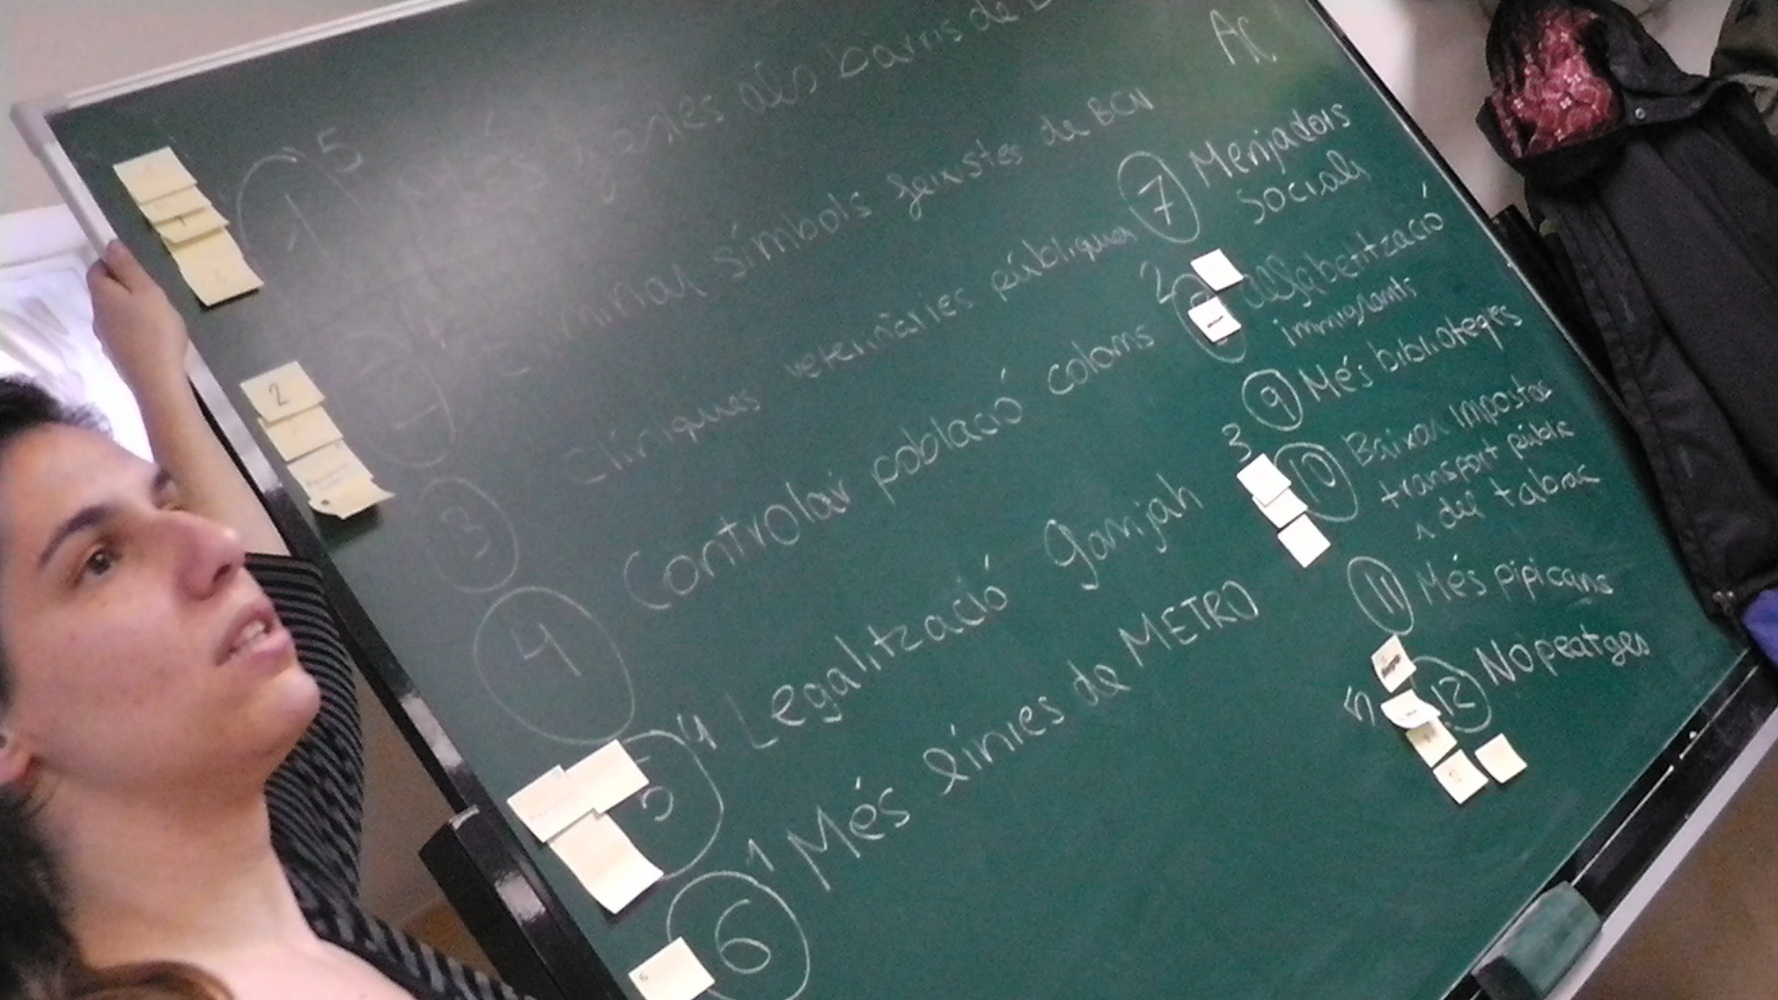 1 5 Més als barris de
Ac.
2 4 Eliminar símbols feixistes de BCN
3 Clíniques veterinàries públiques
4 Controlar població coloms
5 4 Legalització ganjah
6 1 Més línies de METRO
7 Menjadors
socials
2 alfabetització
immigrants
9 Més biblioteques
3 10 Baixar impostos
transport públic
i del tabac
11 Més pipicans
5 12 No peatges
2